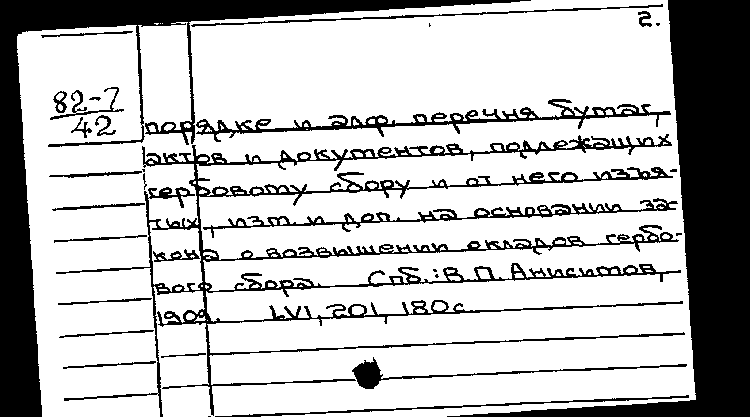 2.
82-7
42
порядке и алф. перечня бумаг,
актов и документов, подлежащих
гербовому сбору и от него изъя-
тых, изм. и доп. на основании за-
кона о возвышении окладов гербо-
вого сбора. Спб.: В.П. Анисимов,
1909. LVI, 201, 180 с.